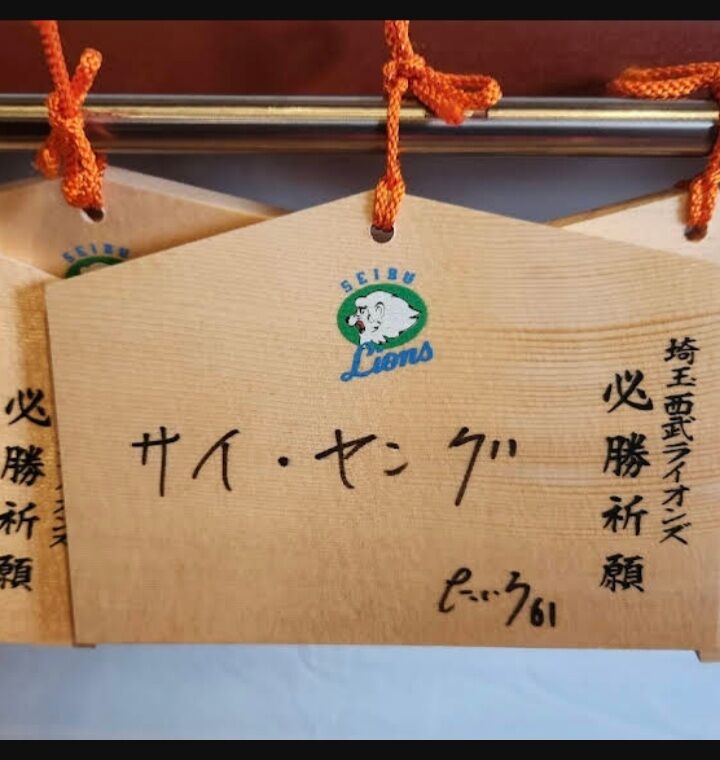 SEIBU
Lions
埼玉西武ライオンズ
必勝祈願
サイ・ヤング
61
SEIBU
必勝祈願
オンズ